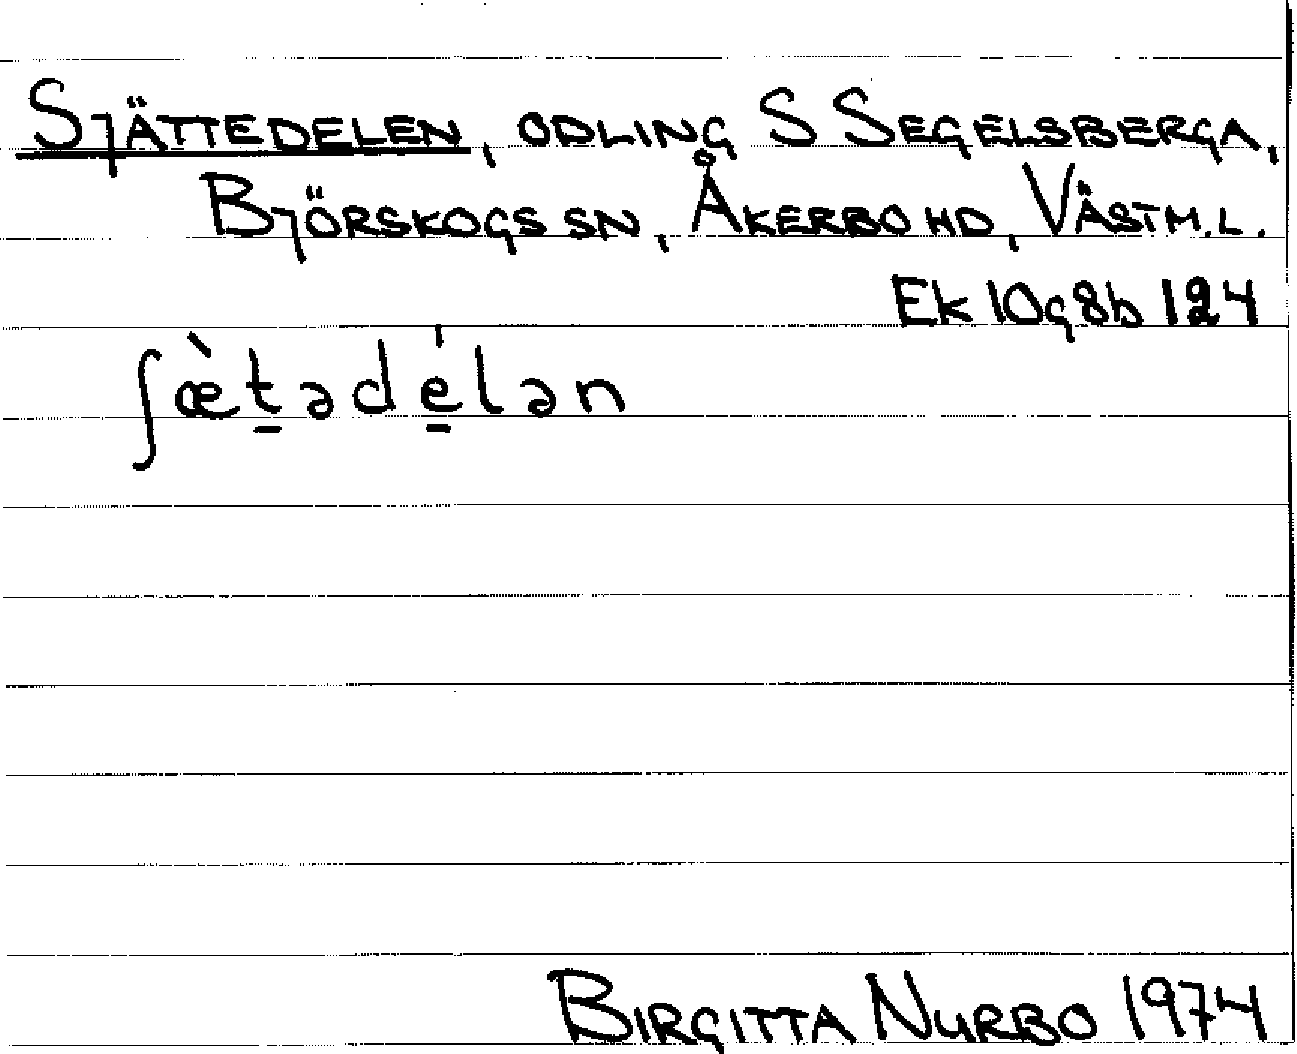 SJÄTTEDELEN, ODLING S SEGELSBERGA,
BJÖRSKOGS SN, ÅKERBO HD, VÄSTM.L.
Ek 10g8b 124
ʃæ̀t̠ədé̠lən
BIRGITTA NURBO 1974